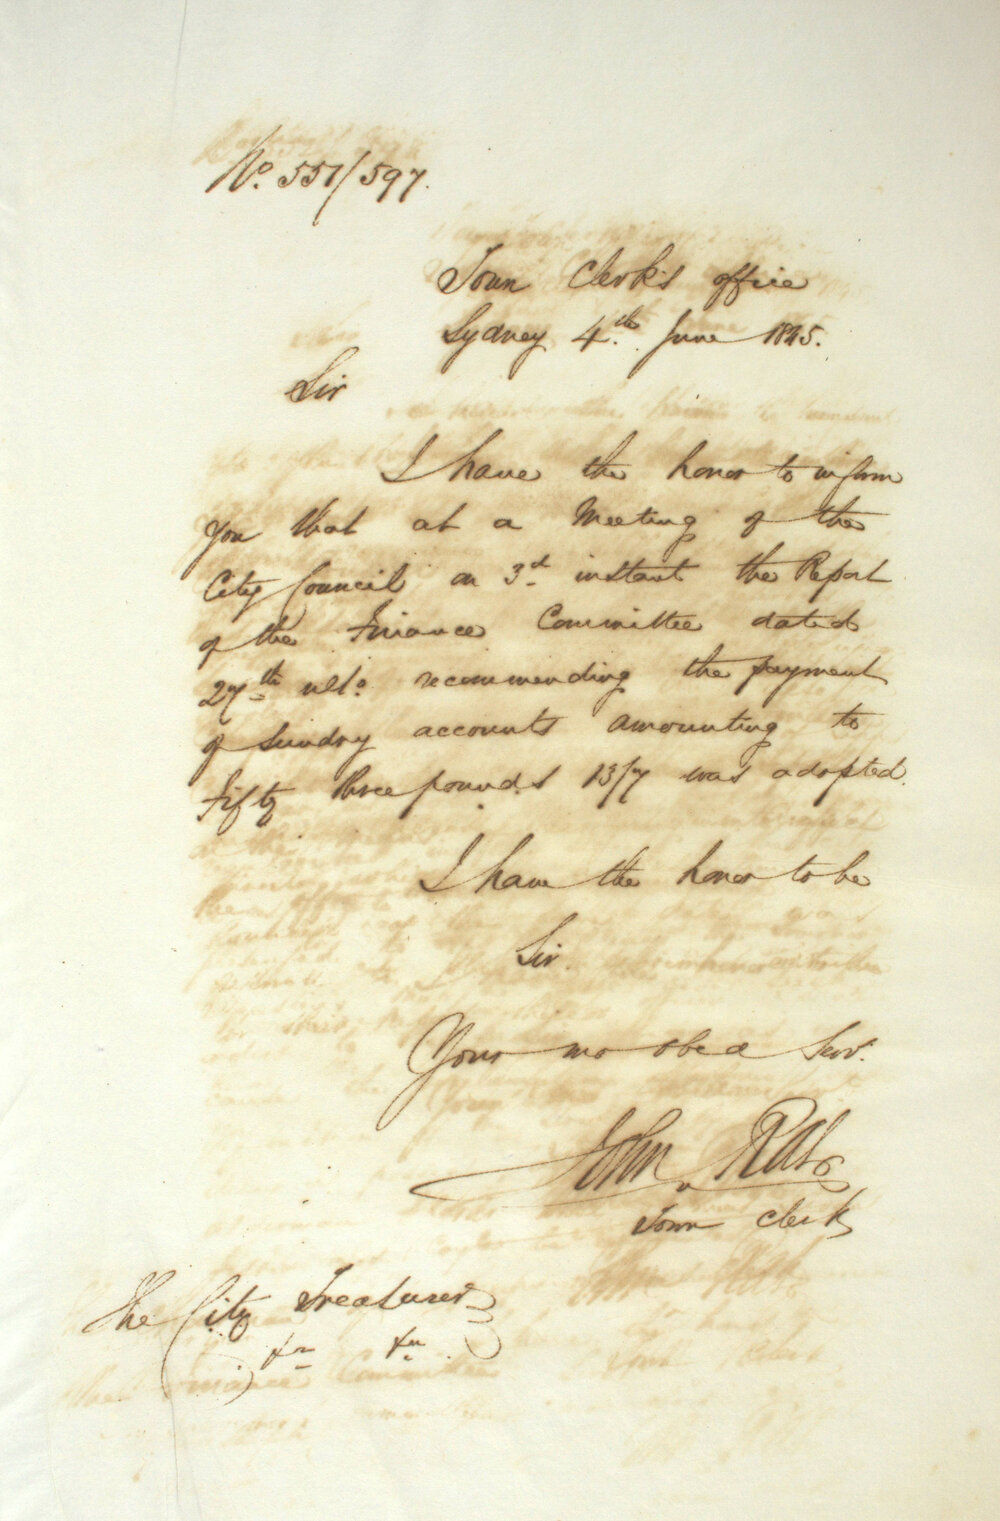 No. 551/597.
Town Clerk's office
Sydney 4th June 1845.
Sir
I have the honor to inform
you that at a Meeting of the
City Council on 3rd instant the Report
of the Finance Committee dated
27th ulto. recommending the payment
of Sundry accounts amounting to
Fifty three pounds 13/7 was adopted.
I have the honor to be
Sir
Your mo obed Servt.
John Rae
Town Clerk
The City Treasurer
&c &c